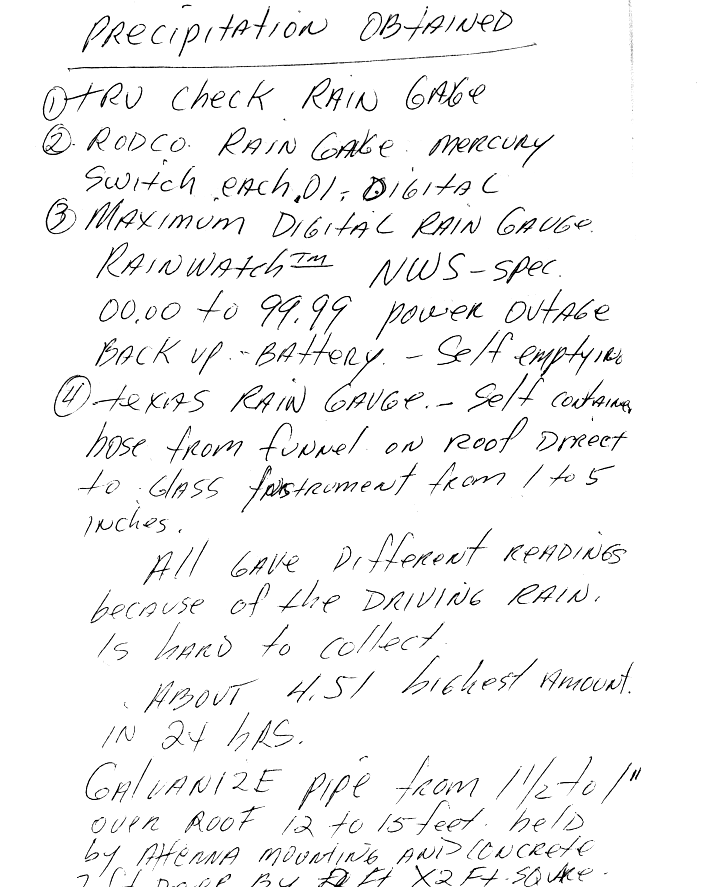 PRECIPITATION OBTAINED
① TRU Check RAIN GAGE
② RODCO. RAIN GAGE. MERCURY
Switch each .01. DIGITAL
③ MAXIMUM DIGITAL RAIN GAUGE.
RAINWATCH™ NWS-spec.
00.00 to 99.99 power outage
BACK UP - BATTERY. - Self emptying
④ TEXAS RAIN GAUGE. - Self contain
hose from funnel on roof Direct
to GLASS Instrument from 1 to 5
inches.
All GAVE Different READINGS
because of the DRIVING RAIN.
Is hard to collect
ABOUT 4.51 highest AMOUNT.
IN 24 hRS.
GALVANIZE pipe from 1 1/2 to 1"
over Roof 12 to 15 feet. held
by ATTENNA MOUNTING AND CONCRETE
2 ft Deep By Ft X 2 Ft. SQUARE.